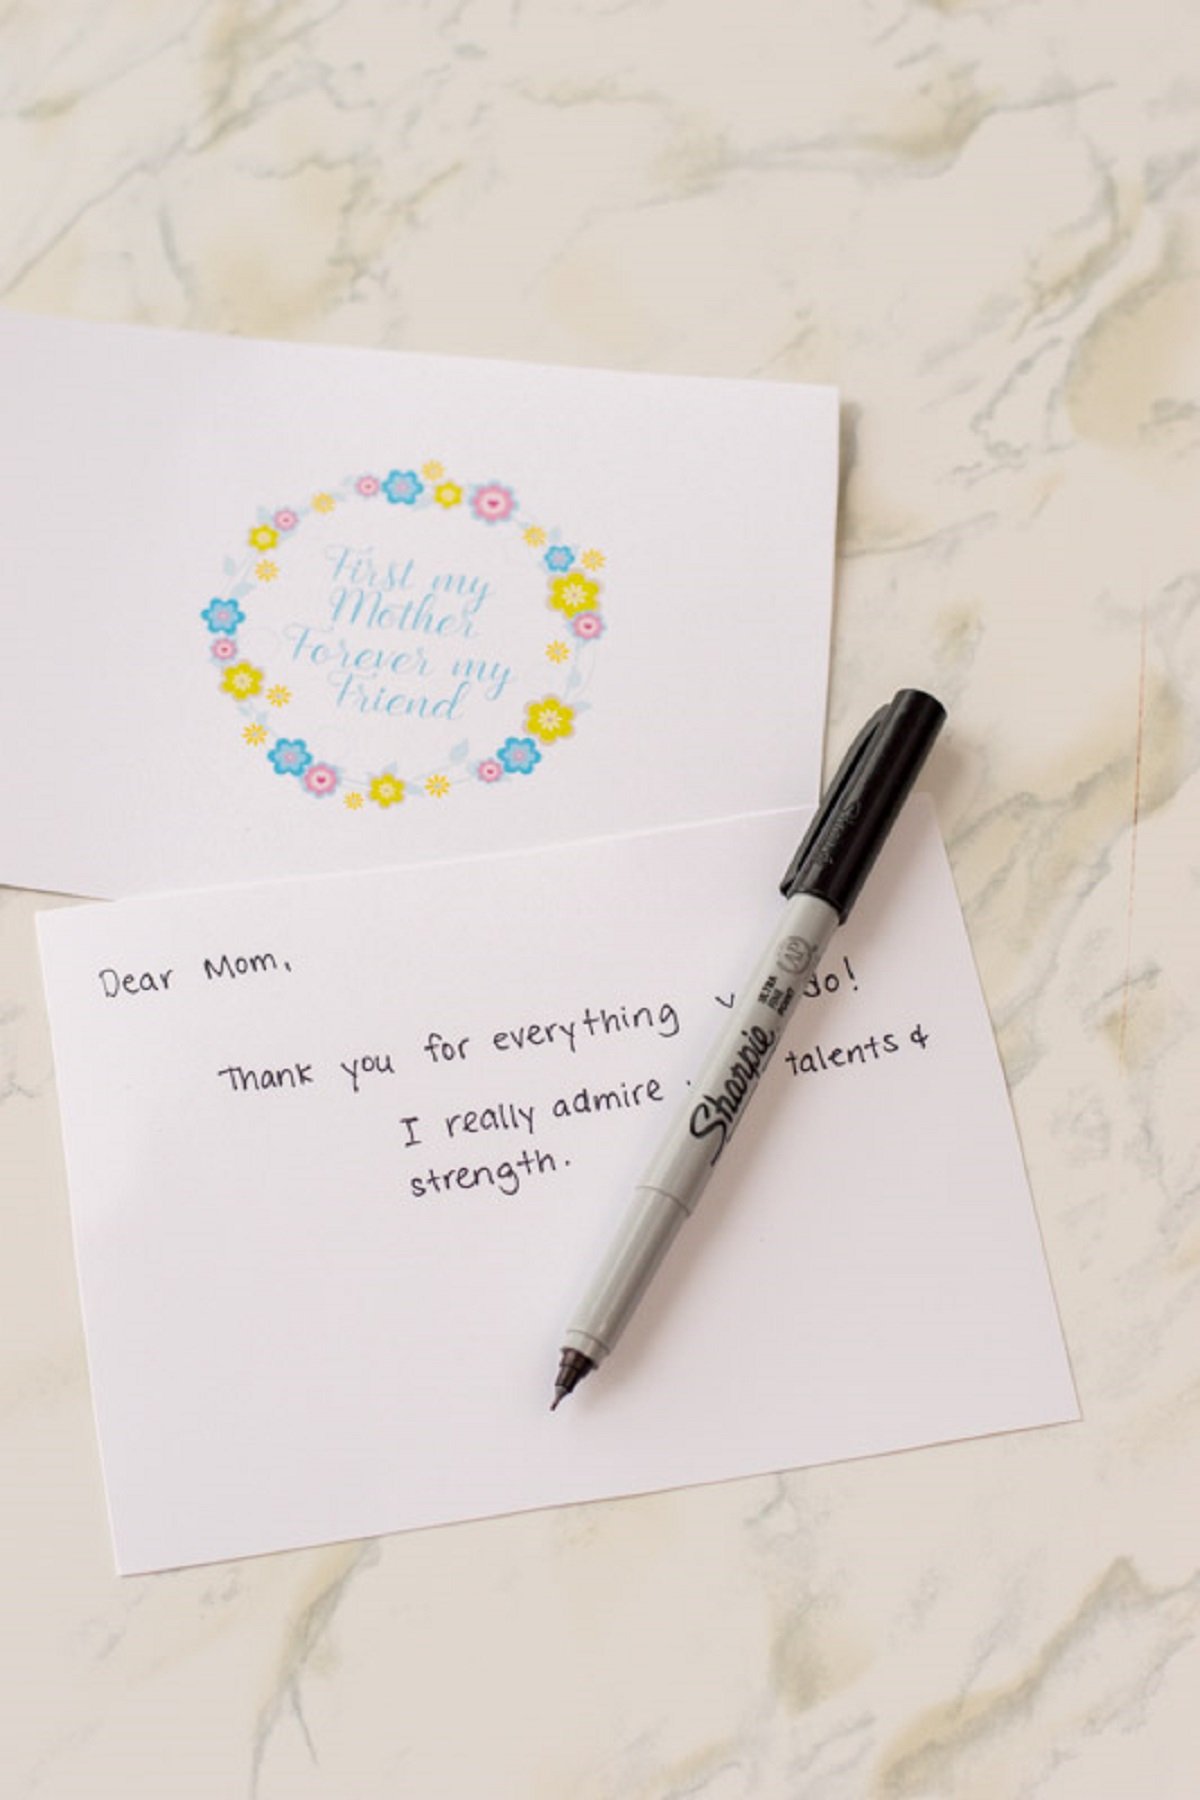 First my
Mother
Forever my
Friend
Dear Mom,
Thank you for everything do!
I really admire talents &
strength.
Sharpie
ULTRA
FINE
POINT
AP